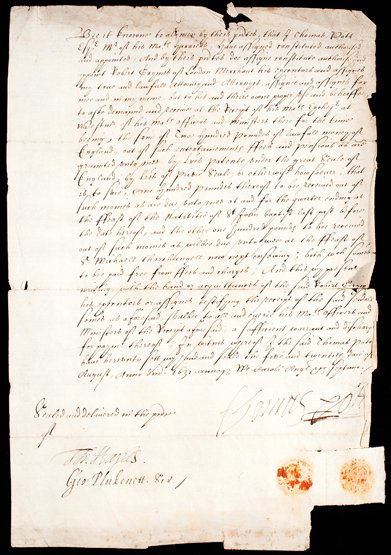 Bee it knowne to all men by these p̃ntes, that I Thomas Pott
Esqr Mr of his Mats
and appointed. And by these p̃ntes doe assigne constitute authorise and
appoint Robert of London Merchant his executors and assignes
my true and lawfull Attorney and Attorneys assignee and assignes for
mee and in my name, but to his and their owne proper use and behoofe
to aske demaund and receive at the Receipt of his Mats Excheqr at
Westminster of his Mats officers and Ministers there for the tyme
being, the sum of Two hundred Pounds of lawfull money of
England, out of such entertainements ffees and pensions as are
graunted unto mee by l̃res patents under the great Seale of
England, by l̃res of Privie Seale or otherwise howsoever, that
is to say, One hundred pounds thereof to be received out of
such moneis as are due unto mee at and for the quarter ending at
the ffeast of the Nativitie of St John Baptist last past before
the date hereof, and the other one hundred pounds to be received
out of such moneis as wilbee due unto mee at the ffeast of
St Michaell Tharchangell now next ensueing; both such sumes
to bee paid free from ffees and charges. And this my present
writing, with the hand or acquittance of the said Robert
his executors or assignes testifying the receipt of the said
somes as aforesaid shalbee to all and every his Mats Officers and
Ministers of the Receipt aforesaid, a sufficient warrant and discharge
for payment thereof. In witnes whereof I the said Thomas Pott
have hereunto sett my hand and seale the five and twentieth daie of
August, Anno Dn̄i 1631 Annoq Rs Caroli Angl septimo
Sealed and delivered in the prese
of
Thomas Pott
Geo: Plukenett. Scr